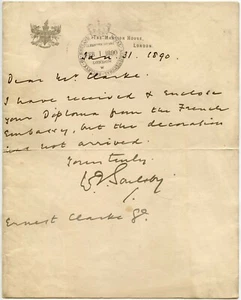 The Mansion House,
London.
Jan. 31. 1890.
Dear Mr. Clarke.
I have received & enclose
your Diploma from the French
Embassy, but the decoration
has not arrived.
Yours truly.
Ernest Clarke Esq.